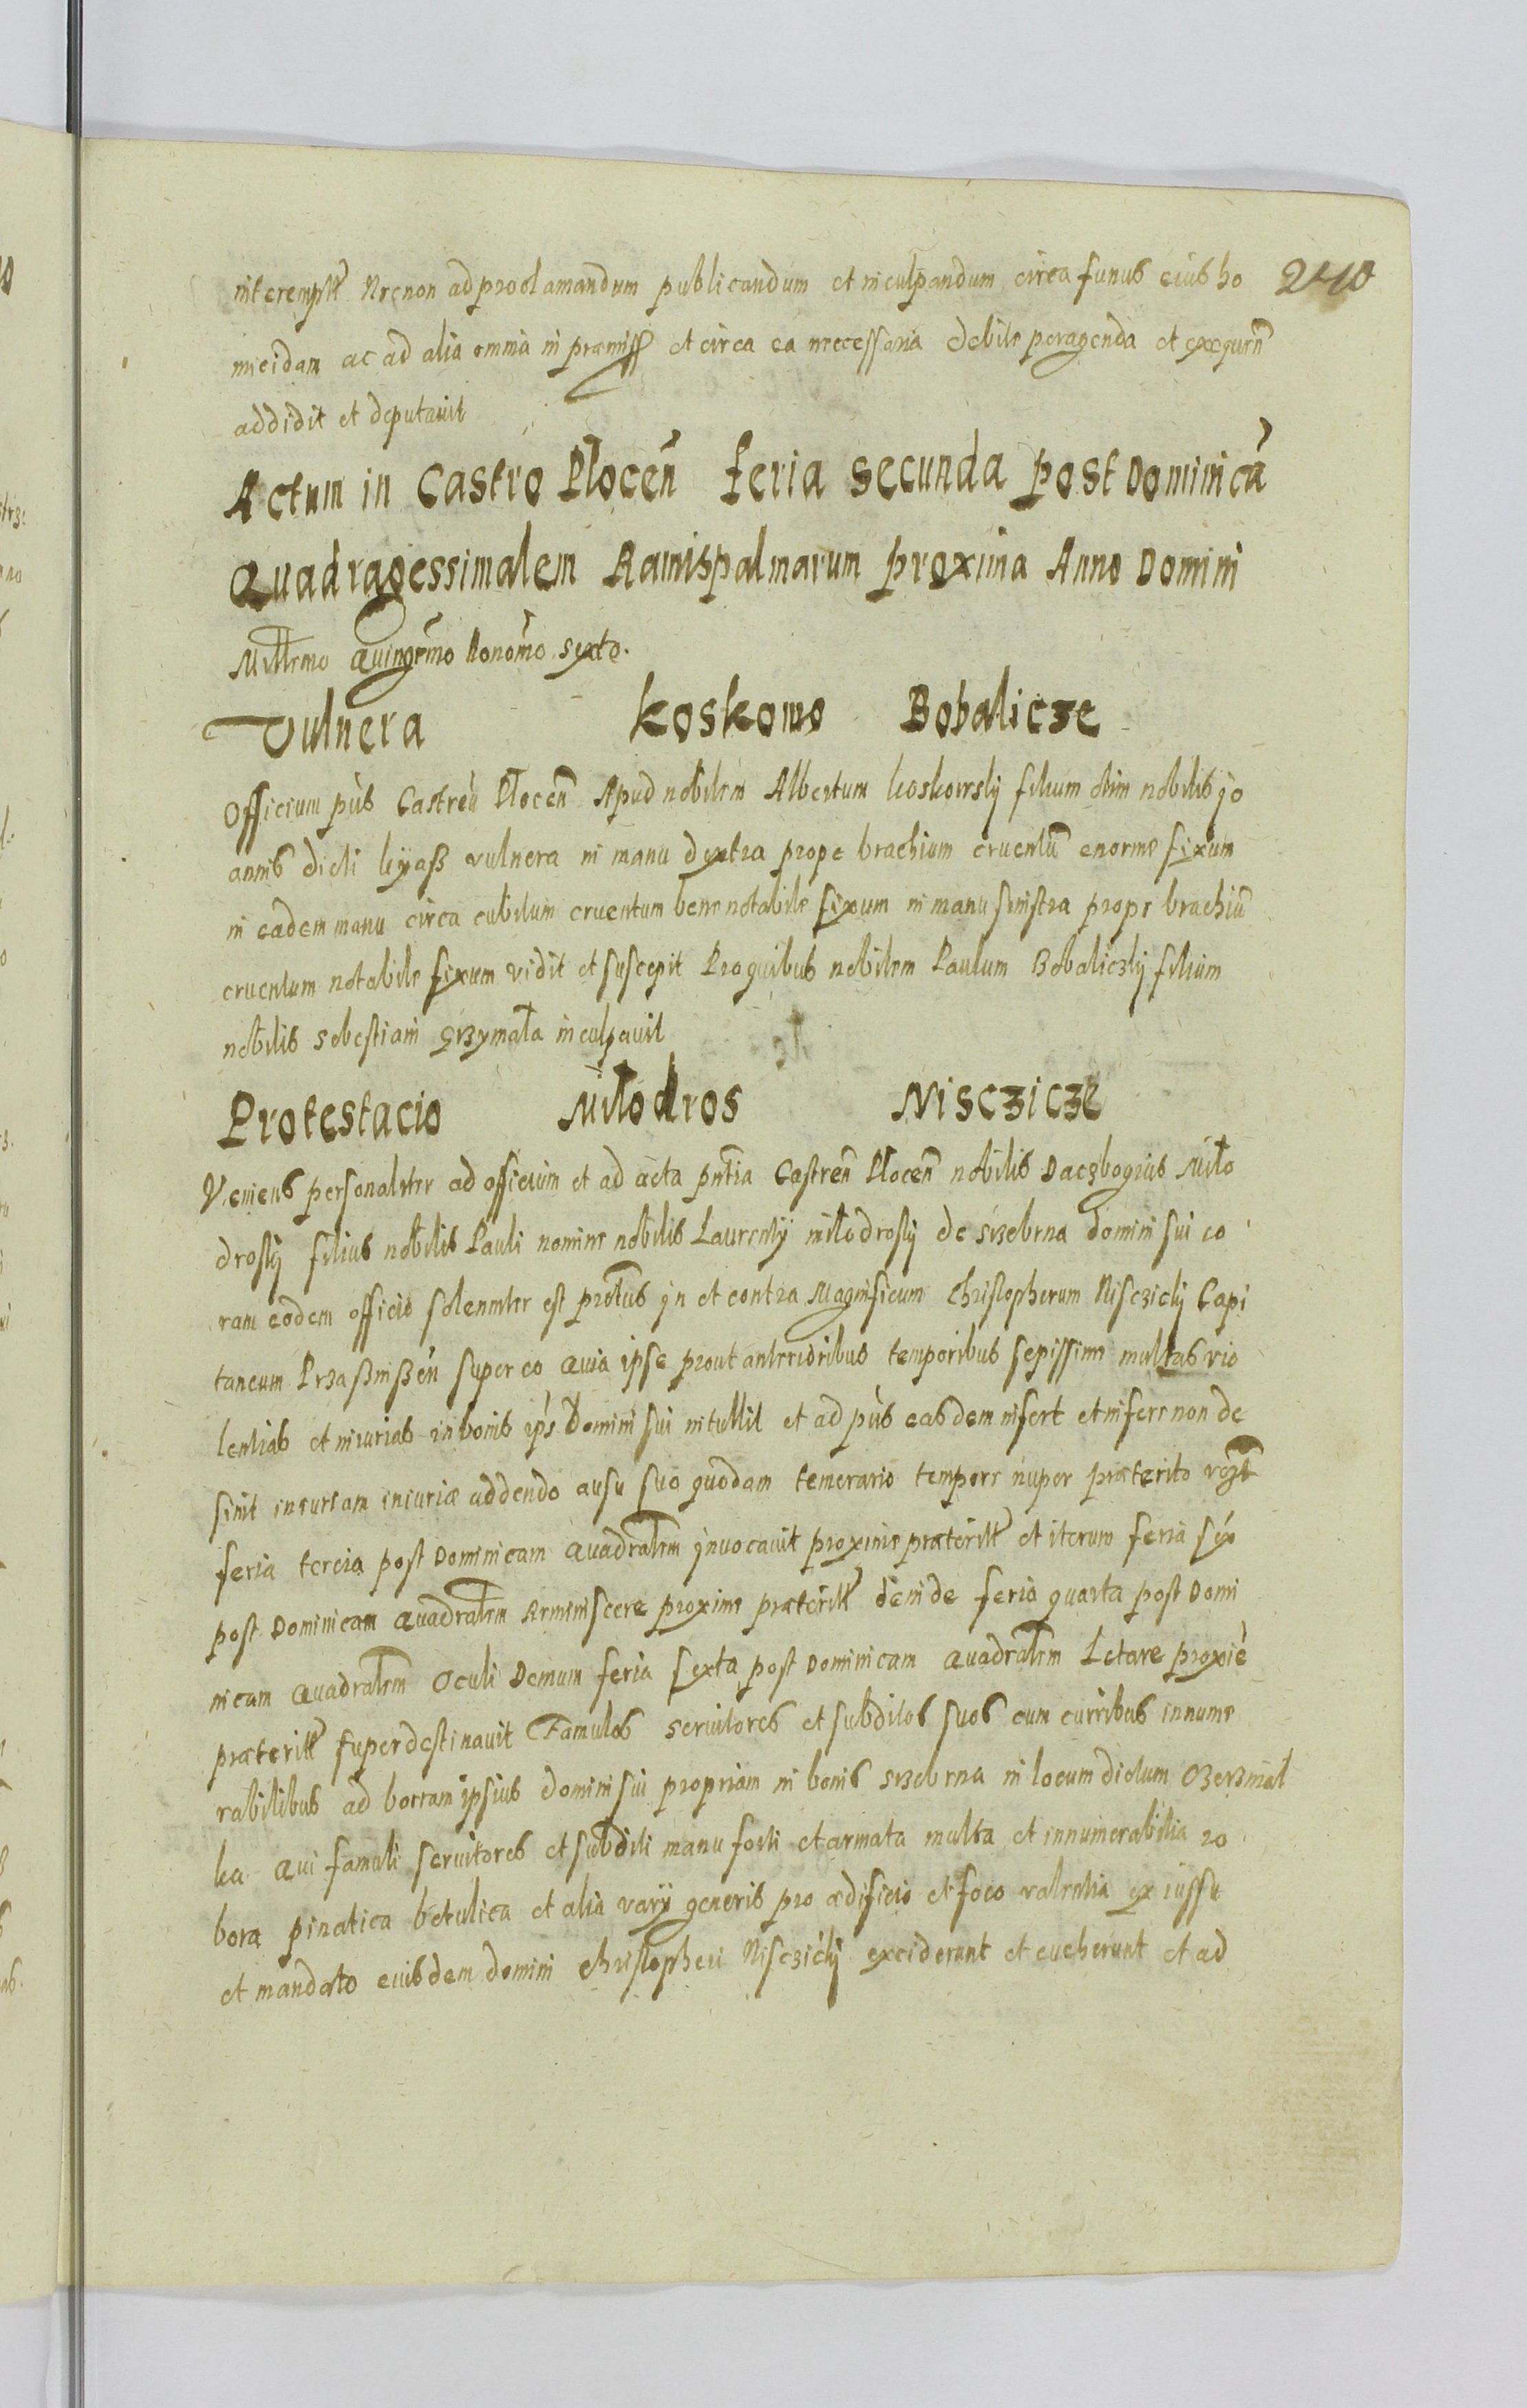 interemptt Necnon ad proclamandum publicandum et inculpandum circa funus eius ho 240
micidam ac ad alia omnia in præmiss et circa ea necessaria debite peragenda et exequen̄
addidit et deputavit
Actum in Castro Płocen̄ feria secunda post Dominicā
Quadragessimalem Ramispalmarum proxima Anno Domini
Millemo Quingēmo Nonōmo sexto.
Vulnera Koskowo Bobalicze
Officium pūs Castren̄ Płocen̄ Apud nobilem Albertum Koskowskÿ filium olim nobilis jo
annis dicti kÿaß vulnera in manu dextra prope brachium cruentū enorme fixum
in eadem manu circa cubitum cruentum bene notabile fixum in manu sinistra prope brachiū
cruentum notabile fixum vidit et suscepit Pro quibus nobilem Paulum Bobaliczkÿ filium
nobilis sebestiani Grzymała inculpavit
Protestacio Miłodros Nisczicze
Veniens personaliter ad officium et ad acta pn̄tia Castren̄ Płocen̄ nobilis Daczbogius Miło
droskÿ filius nobilis Pauli nomine nobilis Laurentÿ miłodroskÿ de srzebrna domini sui co
ram eodem officio solenniter est prōtus jn et contra Magnificum Christopherum Nisczickÿ Capi
taneum Przasznißen̄ super eo Quia ipse prout anterioribus temporibus sepissime multas vio
lentias et iniurias in bonis ip̄s Domini sui intullit et ad pūs easdem infert et inferre non de
sinit iniuriam iniuriæ addendo ausu suo quodam temerario tempore nuper præterito vēzt
feria tercia post Dominicam Quadralem jnvocavit proxime præteritt et iterum feria sex
post Dominicam Quadralem Reminiscere proxime præteritt deinde feria quarta post Domi
nicam Quadralem Oculi Demum feria sexta post Dominicam Quadralem Letare proxiē
præteritt superdestinavit Famulos servitores et subditos suos cum curribus innume
rabilibus ad borram ipsius domini sui propriam in bonis srzebrna in locum dictum
ka Qui famuli servitores et subditi manu forti et armata multa et innumerabilia ro
bora pinatica betulica et alia varÿ generis pro ædificio et foco valentia ex iussu
et mandato eiusdem domini Christopheri Nisczickÿ exciderunt et eveherunt et ad